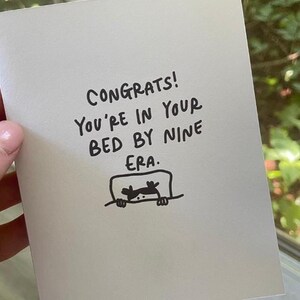 CONGRATS!
YOU'RE IN YOUR
BED BY NINE
ERA.